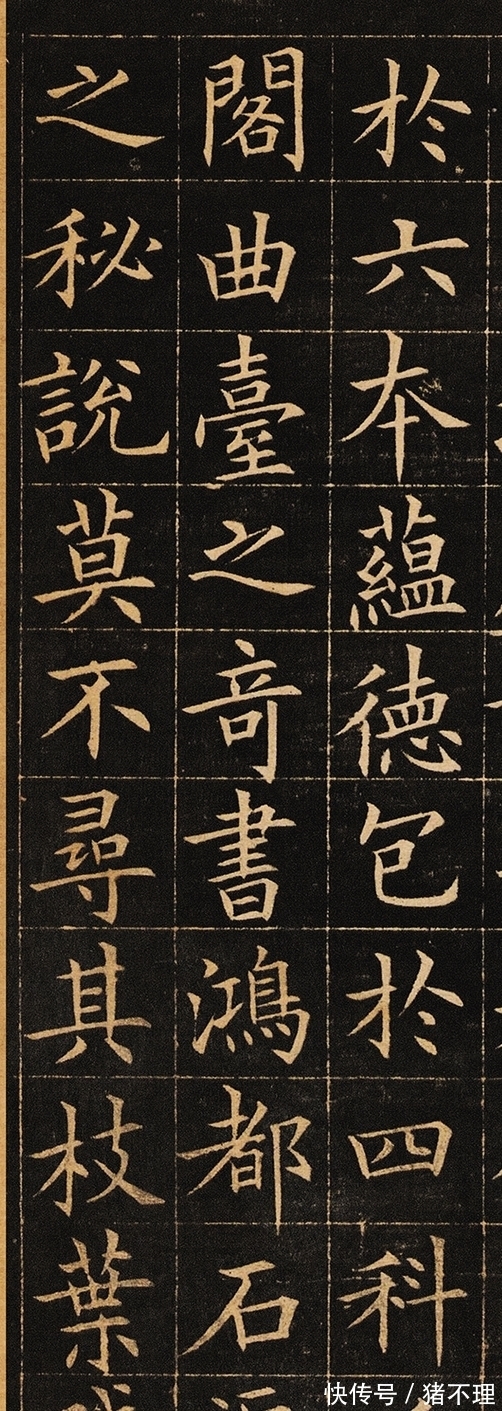 於六本蘊德包於四科
閣曲臺之奇書鴻都石
之秘說莫不尋其枝葉
快传号/猪不理